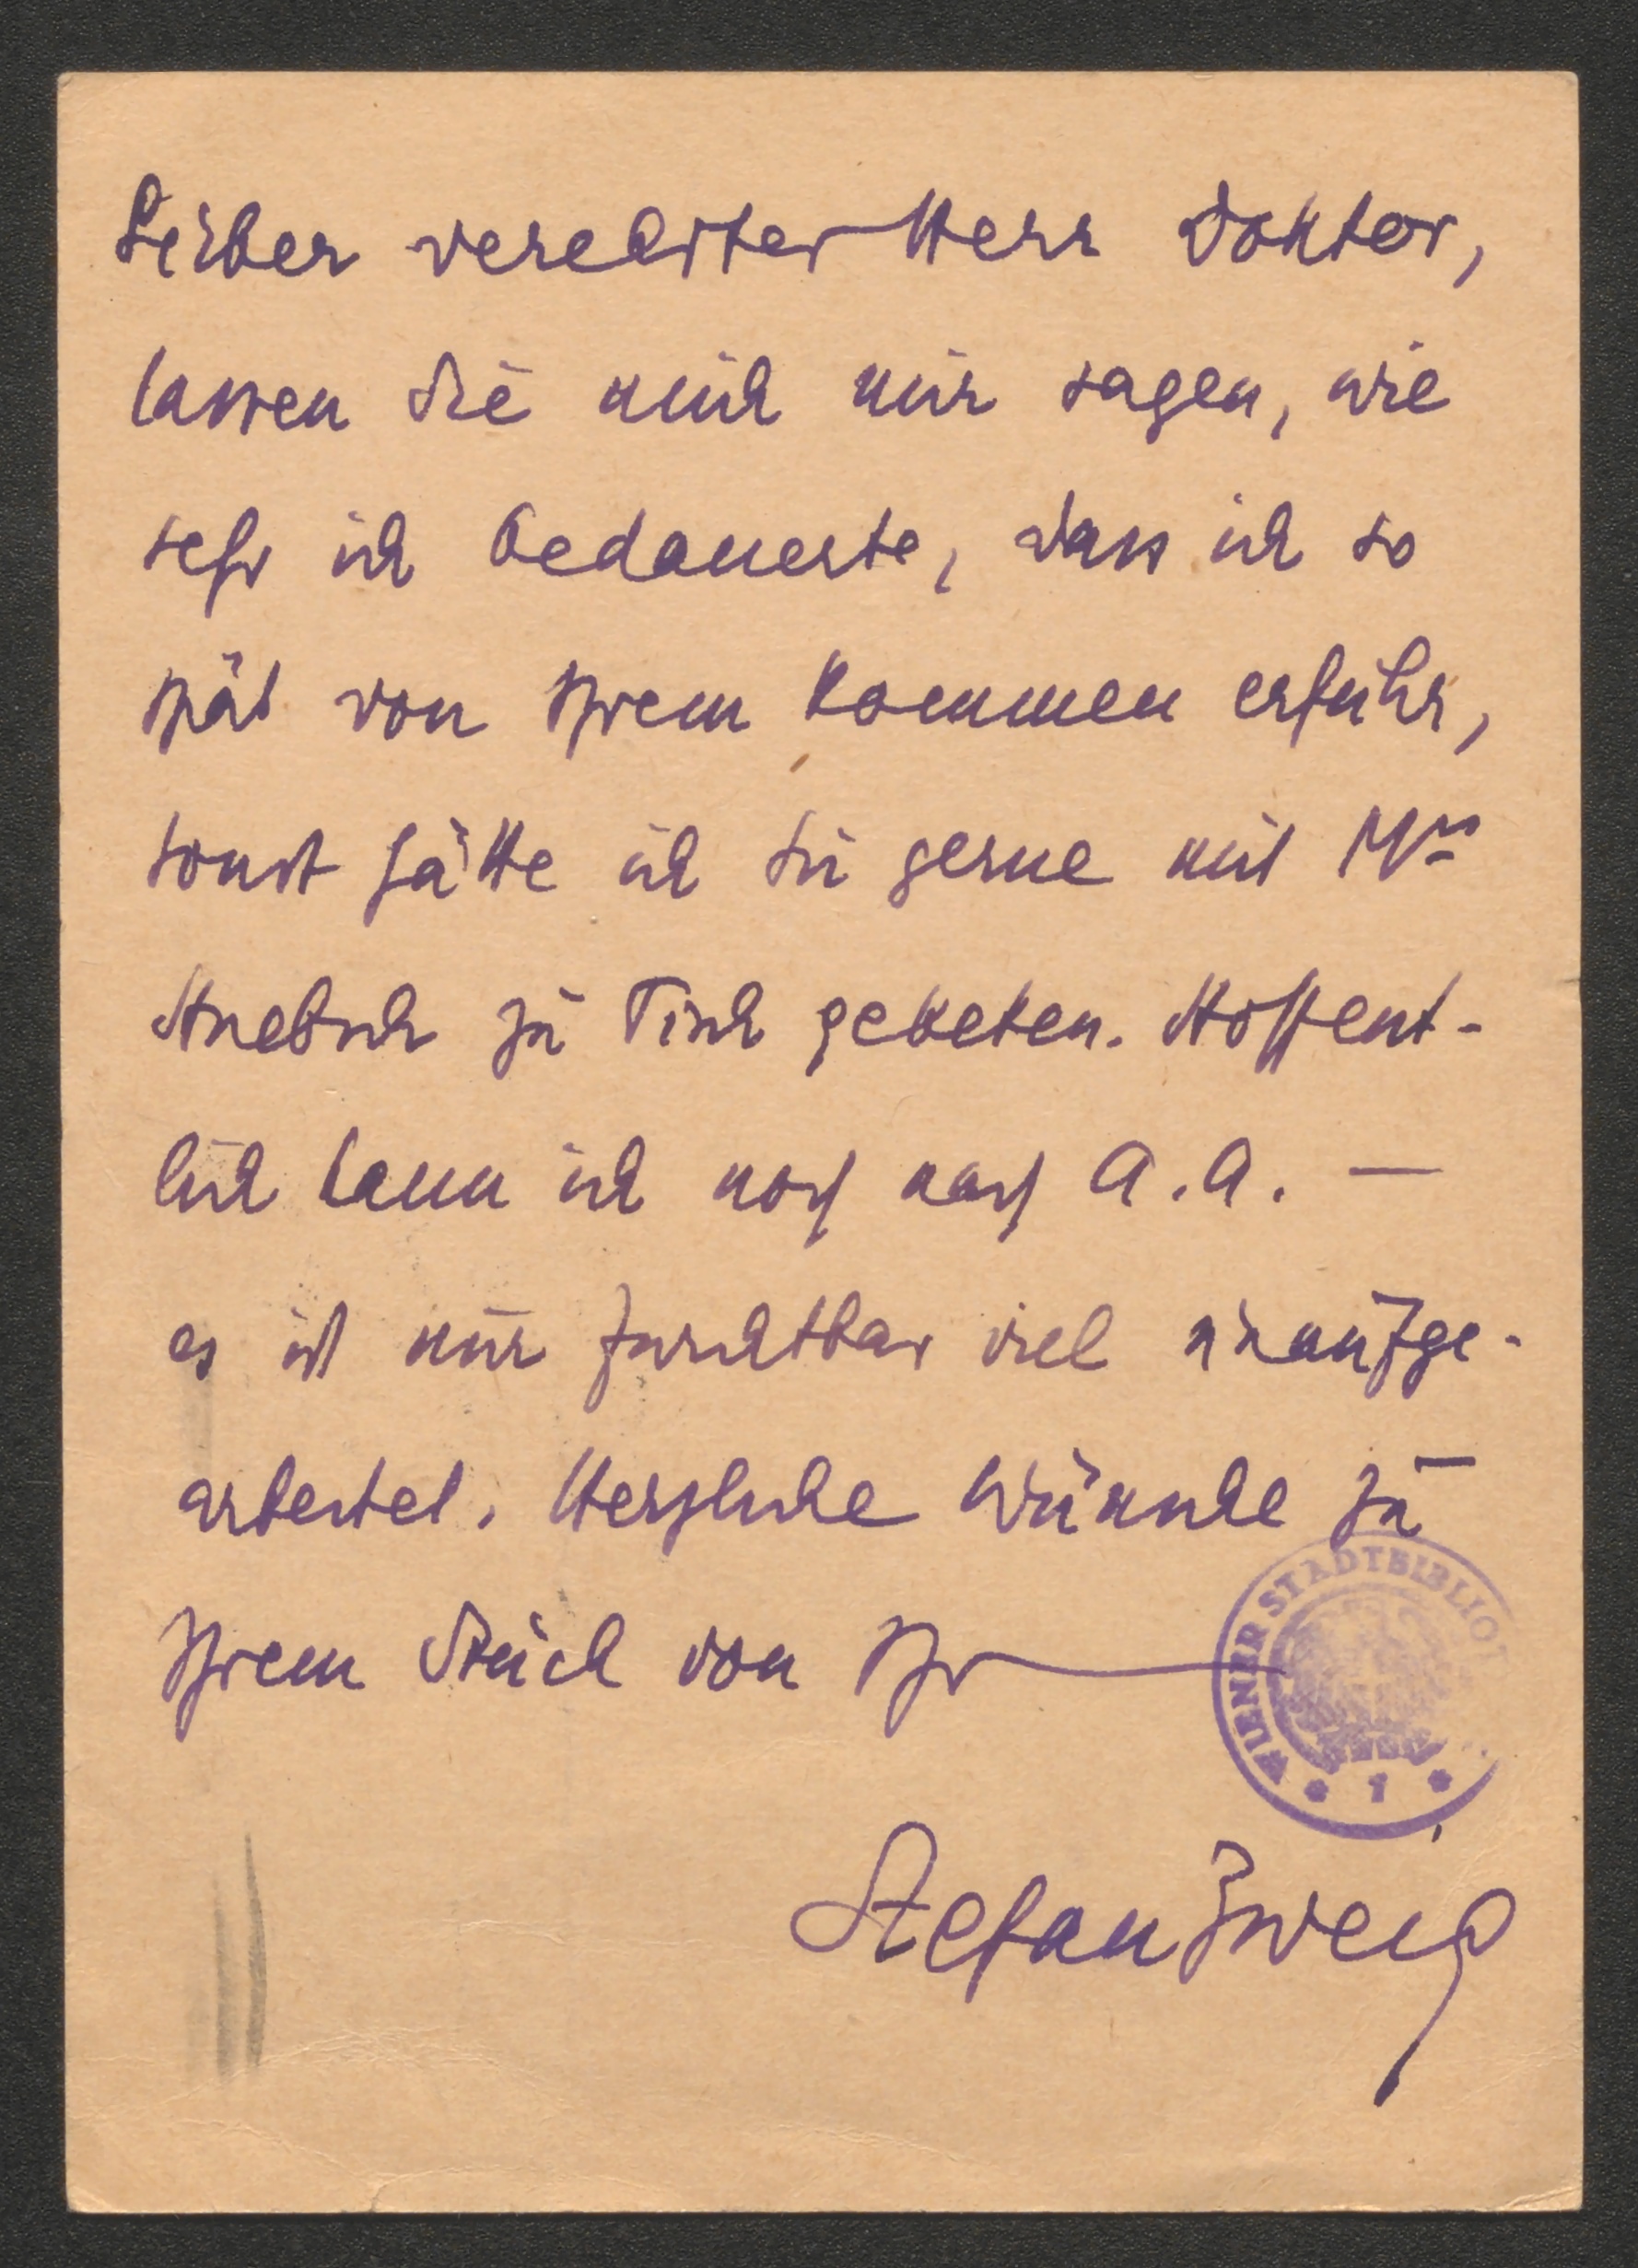 Lieber verehrter Herr Doktor,
lassen Sie mich nur sagen, wie
sehr ich bedauerte, dass ich so
spät von Ihrem Kommen erfuhr,
sonst hätte ich Sie gerne mit Mrs
zu Tisch gebeten. Hoffent-
lich kann ich noch nach A.A. —
es ist nur furchtbar viel
arbeitet. Herzliche Wünsche zu
Ihrem Stück von Ihr
WIENER STADTBIBLIOT
* 1 *
Stefan Zweig